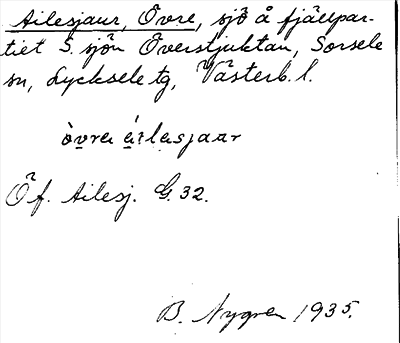 Ailesjaur, Övre, sjö å fjällpar-
tiet S. sjön Överstjuktan, Sorsele
sn, Lycksele tg, Västerb. l.
Öf. Ailesj. G. 32.
B. Nygren 1935.